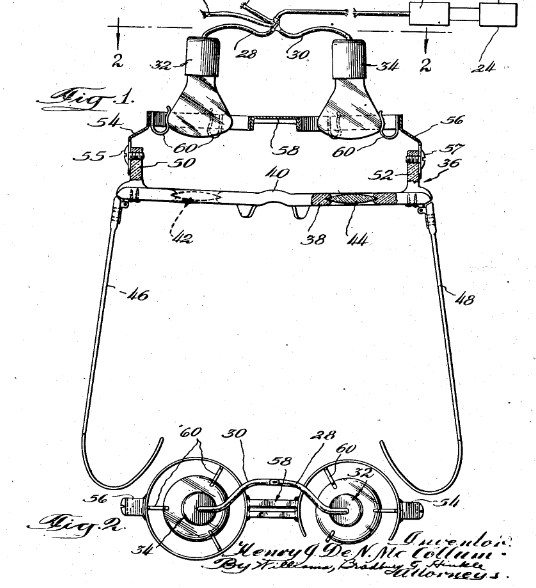 28
30
24
2
2
32
34
Fig. 1.
54
56
60
58
60
55
57
50
52
36
40
42
38
44
46
48
60
30
28
58
60
32
56
54
Fig. 2.
34
Inventor:
Henry J. De N. McCollum.
By Williams, Bradbury & Hinkle
Attorneys.